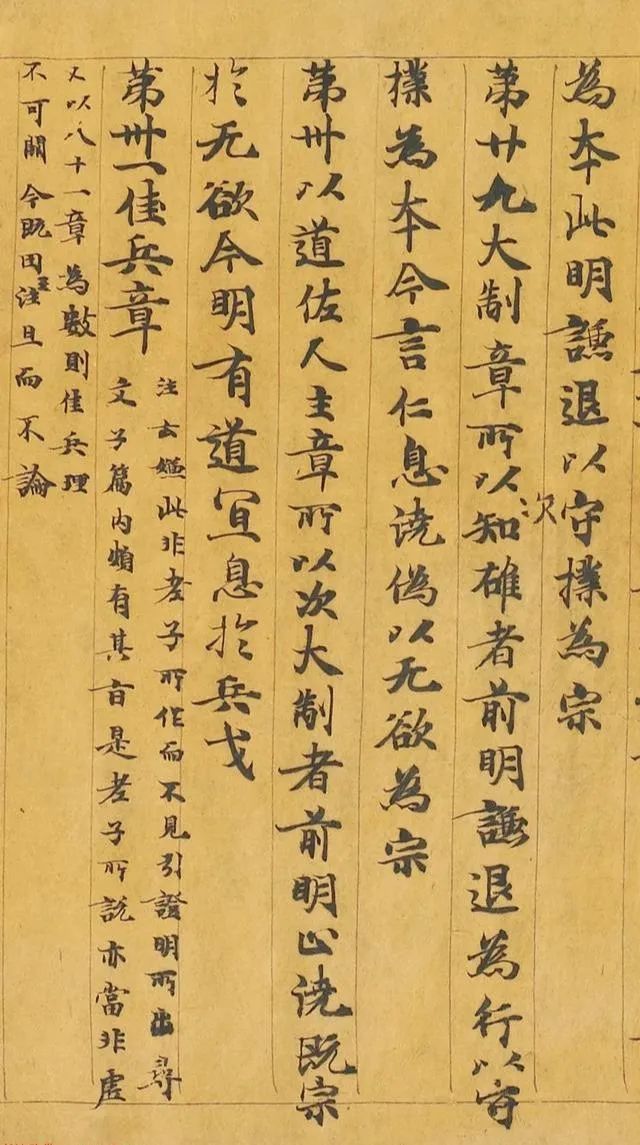 為本此明謙退以守撲為宗
第廿九大制章所以次知雄者前明謙退為行以守
撲為本今言仁息澆偽以无欲為宗
第卅以道佐人主章所以次大制者前明止澆既宗
於无欲今明有道冝息於兵戈
第卅一佳兵章
注云嫌此非老子所作而不見引證明所出尋
文子篇內頗有其旨是老子所說亦當非虛
又以八十一章為數則佳兵理
不可闕今既因王注且而不論